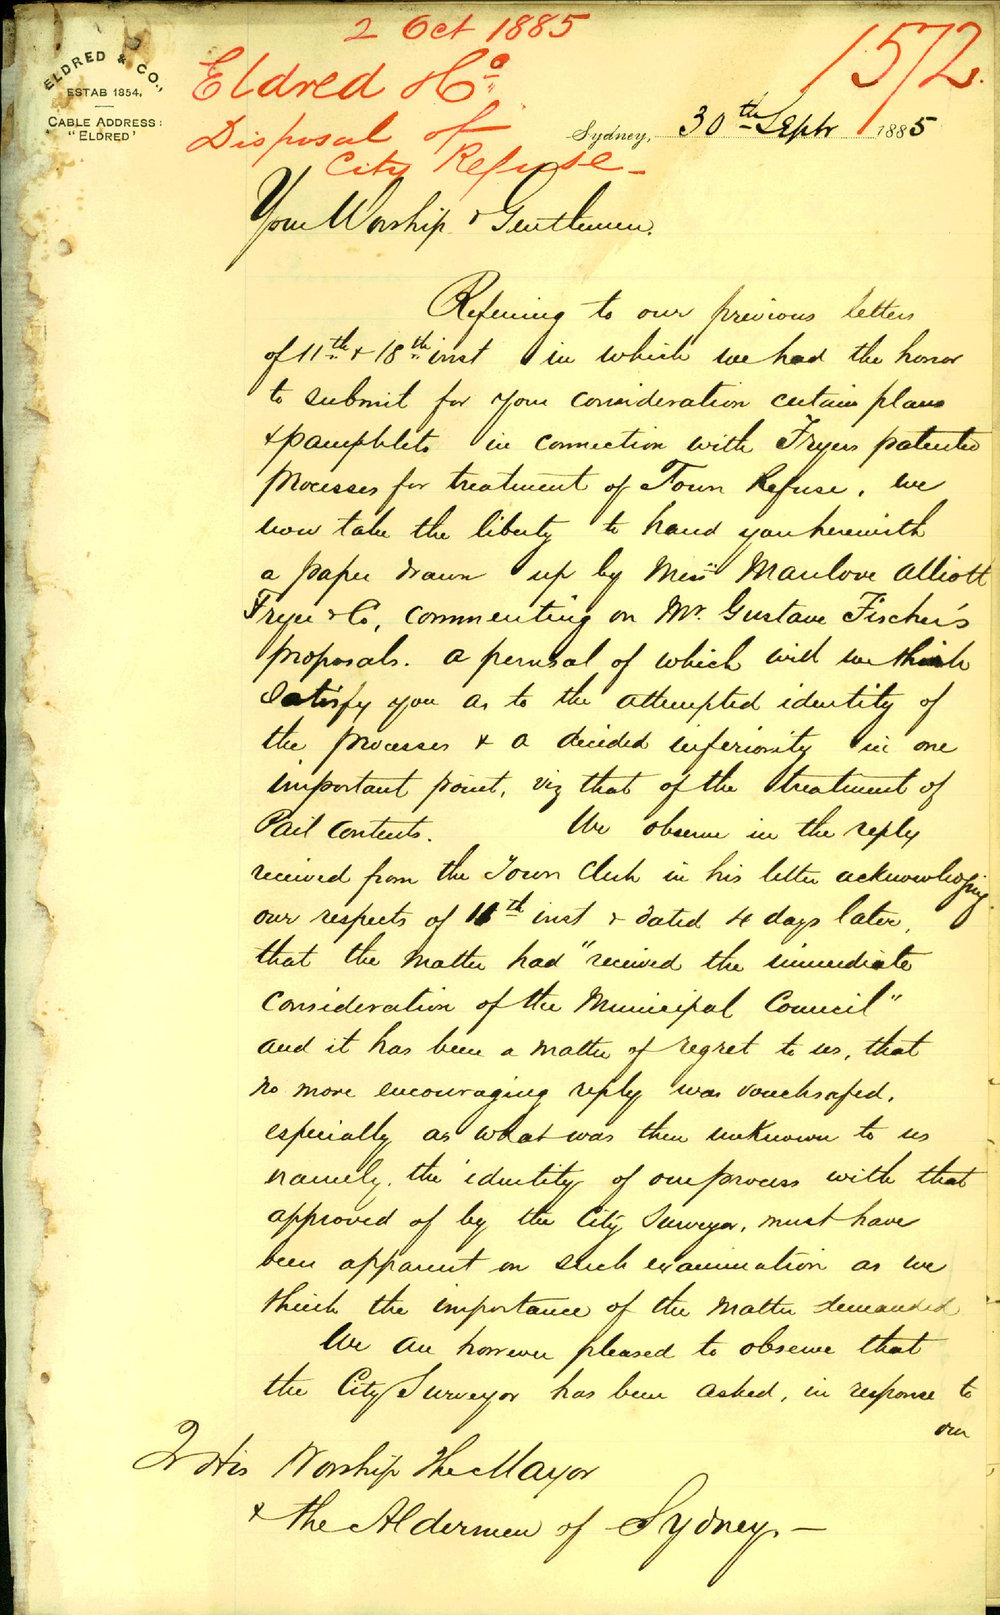 2 Oct 1885
1572.
Eldred & Co
Disposal of
City Refuse -
ELDRED & CO.,
ESTAB 1854,
CABLE ADDRESS:
"ELDRED"
Sydney, 30th Septr 1885
Your Worship & Gentlemen.
Referring to our previous letters
of 11th & 18th inst in which we had the honor
to submit for your consideration certain plans
& pamphlets in connection with Fryers patented
processes for treatment of Town Refuse, we
now take the liberty to hand you herewith
a paper drawn up by Messrs Manlove Alliott
Fryer & Co, commenting on Mr. Gustave Fischer's
proposals. a perusal of which will we think
satisfy you as to the attempted identity of
the processes & a decided inferiority in one
important point, viz that of the treatment of
Pail Contents. We observe in the reply
received from the Town Clerk in his letter acknowledging
our respects of 11th inst & dated 4 days later,
that the matter had "received the immediate
consideration of the Municipal Council"
and it has been a matter of regret to us, that
no more encouraging reply was vouchsafed,
especially as what was then unknown to us
namely, the identity of our process with that
approved of by the City Surveyor, must have
been apparent on such examination as we
think the importance of the matter demanded
We are however pleased to observe that
the City Surveyor has been asked, in response to
our
To His Worship The Mayor
& the Aldermen of Sydney. -